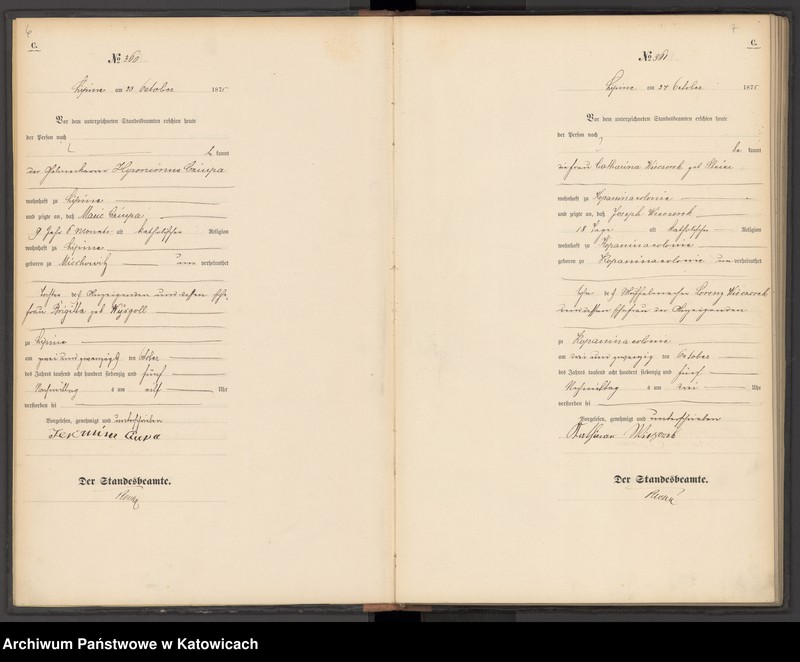 C.
№ 360
Lipine am 23 October 1875
Vor dem unterzeichneten Standesbeamten erschien heute
der Person nach
be kannt
der Hyronimus Cziupa
wohnhaft zu Lipine
und zeigte an, daß Marie Cziupa,
9 Jahr 6 Monate alt katholischer Religion
wohnhaft zu Lipine
geboren zu Miechowitz unverheirathet
Tochter des Anzeigenden und dessen Ehe-
frau Brigitta geb
zu Lipine
am zwei und zwanzigst en October
des Jahres tausend acht hundert siebenzig und fünf
Nachmittag s um elf Uhr
verstorben sei
Vorgelesen, genehmigt und unterschrieben
Der Standesbeamte.
7
C.
№ 361
Lipine am 24 October 1875
Vor dem unterzeichneten Standesbeamten erschien heute
der Person nach
be kannt
die Frau Catharina Wieczorek geb
wohnhaft zu Kopaninacolonie
und zeigte an, daß Joseph Wieczorek
18 Tage alt katholischer Religion
wohnhaft zu Kopaninacolonie
geboren zu Kopaninacolonie unverheirathet
Sohn des Lorenz Wieczorek
und dessen Ehefrau der Anzeigenden
zu Kopaninacolonie
am drei und zwanzig en October
des Jahres tausend acht hundert siebenzig und fünf
Nachmittag s um drei Uhr
verstorben sei
Vorgelesen, genehmigt und unterschrieben
Der Standesbeamte.
Archiwum Państwowe w Katowicach